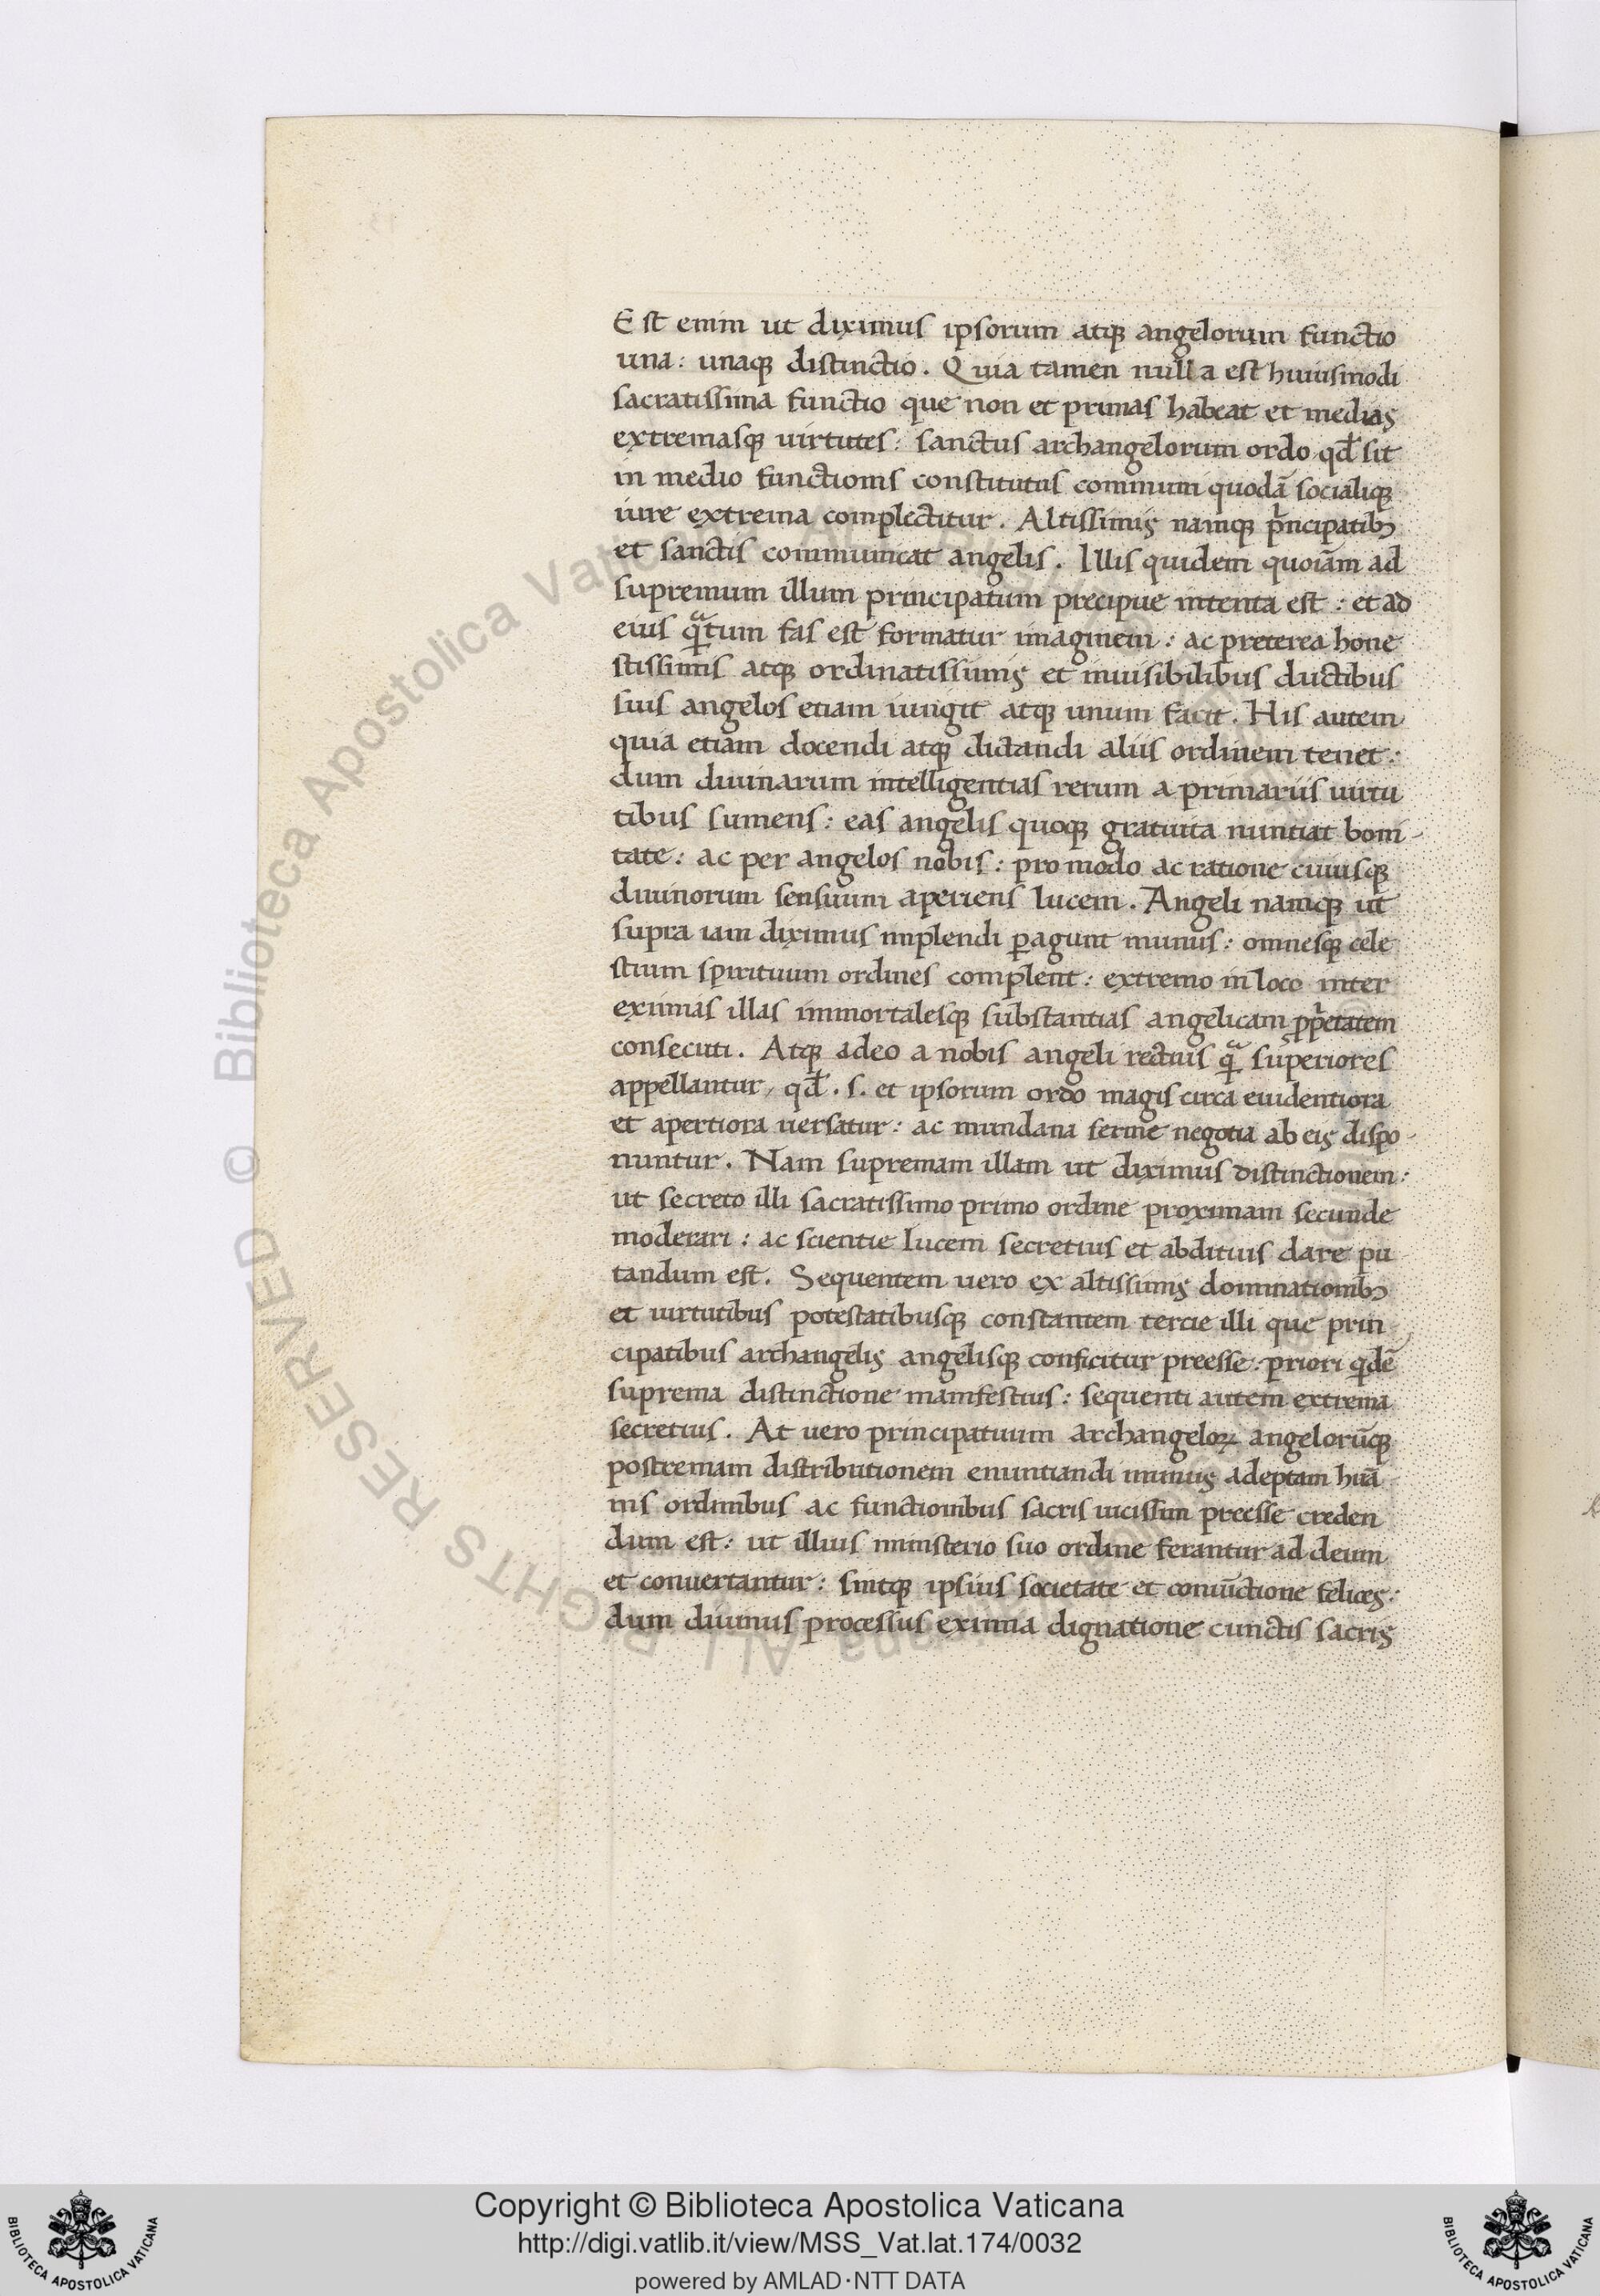 Est enim ut diximus ipsorum atq angelorum functio
una: unaq distinctio. Quia tamen nulla est huiusmodi
sacratissima functio que non et primas habeat et medias
extremasq uirtutes: sanctus archangelorum ordo qđ sit
in medio functionis constitutus communi quodā socialiq
iure extrema complectitur. Altissimis namq pncipatib
et sanctis communicat angelis. Illis quidem quoiam ad
supremum illum principatum precipue intenta est: et ad
eius qtum fas est formatur imaginem: ac preterea hone
stissimis atq ordinatissimis et inuisibilibus ductibus
suis angelos etiam iungit atq unum facit. His autem
quia etiam docendi atq dictandi aliis ordinem tenet:
dum diuinarum intelligentias rerum a primariis uirtu
tibus sumens: eas angelis quoq gratuita nuntiat boni-
tate: ac per angelos nobis: pro modo ac ratione cuiusq
diuinorum sensuum aperiens lucem. Angeli namq ut
supra iam diximus implendi pagunt munus: omnesq cele
stium spirituum ordines complent: extremo in loco inter
eximias illas immortalesq substantias angelicam ppetatem
consecuti. Atq adeo a nobis angeli rectius q superiores
appellantur, qđ .s. et ipsorum ordo magis circa euidentiora
et apertiora uersatur: ac mundana ferme negotia ab eis dispo-
nuntur. Nam supremam illam ut diximus distinctionem:
ut secreto illi sacratissimo primo ordine proximam secunde
moderari: ac scientie lucem secretius et abditius dare pu
tandum est. Sequentem uero ex altissimis dominationib
et uirtutibus potestatibusq constantem tercie illi que prin-
cipatibus archangelis angelisq conficitur preesse: priori qdē
suprema distinctione manifestius: sequenti autem extrema
secretius. At uero principatuum archangeloꝝ angelorūq
postremam distributionem enuntiandi munus adeptam huā
nis ordinibus ac functionibus sacris uicissim preesse creden
dum est: ut illius ministerio suo ordine ferantur ad deum
et conuertantur: sintq ipsius societate et conūctione felices:
dum diuinus processus eximia dignatione cunctis sacris
© Biblioteca Apostolica Vaticana ALL RIGHTS RESERVED
Copyright © Biblioteca Apostolica Vaticana
http://digi.vatlib.it/view/MSS_Vat.lat.174/0032
powered by AMLAD·NTT DATA
BIBLIOTECA APOSTOLICA VATICANA
BIBLIOTECA APOSTOLICA VATICANA